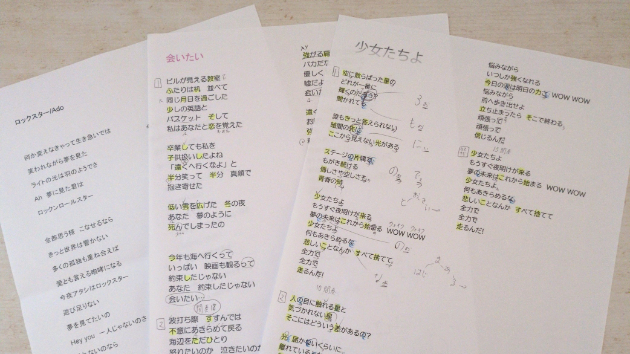 ロックスター/Ado
何か変えなきゃって生き急いでは
笑われながら夢を見た
ライトの元は羽のようでさ
Ah 夢に見た星は
ロックンロールスター
全部思う様 こなせるなら
きっと世界は響かない
多くの孤独も重ね合えば
愛とも言える咆哮になる
今夜アタシはロックスター
遊び足りない
夢を見てたいの
Hey you 一人じゃないのさ
会いたい
1
ビルが見える教室で
ふたりは机 並べて
同じ月日を過ごした
少しの英語と
バスケット そして
私はあなたと恋を覚えた
卒業しても私を
子供扱いしたよね
「遠くへ行くなよ」と
半分笑って 半分 真顔で
抱き寄せた
低い雲を広げた 冬の夜
あなた 夢のように
死んでしまったの
今年も海へ行くって
いっぱい 映画も観るって
約束したじゃない
あなた 約束したじゃない
会いたい
2
波打ち際 すすんでは
不意にあきらめて戻る
海辺をただひとり
怒りたいのか 泣きたいのか
強がる
バカだ
優しく
嘘だよ
会い
少女たちよ
1
空に散らばった星の
どれか一番に
輝くのだろう
聞かれても
誰もきっと答えられない
暗闇の先は
ここから見えない光がある
ステージの片隅で
もがき続ける
悔しさや空しさも
青春の
少女たちよ
もうすぐ夜明けが来る
夢の未来はこれから始まる WOW WOW
少女たちよ
何もあきらめるな
悲しいことなんか すべて捨てて
全力で
全力で
走るんだ!
2
人の目に触れる星と
気づかれない星
そこにはどういう差があるの?
悩みながら
いつしか強くなれる
今日の涙は明日の力さ WOW WOW
悩みながら
前へ歩き出せよ
立ち止まったら そこで終わる
頑張って
頑張って
信じるんだ
少女たちよ
もうすぐ夜明けが来る
夢の未来はこれから始まる WOW WOW
少女たちよ
何もあきらめるな
悲しいことなんか すべて捨てて
全力で
全力で
走るんだ!